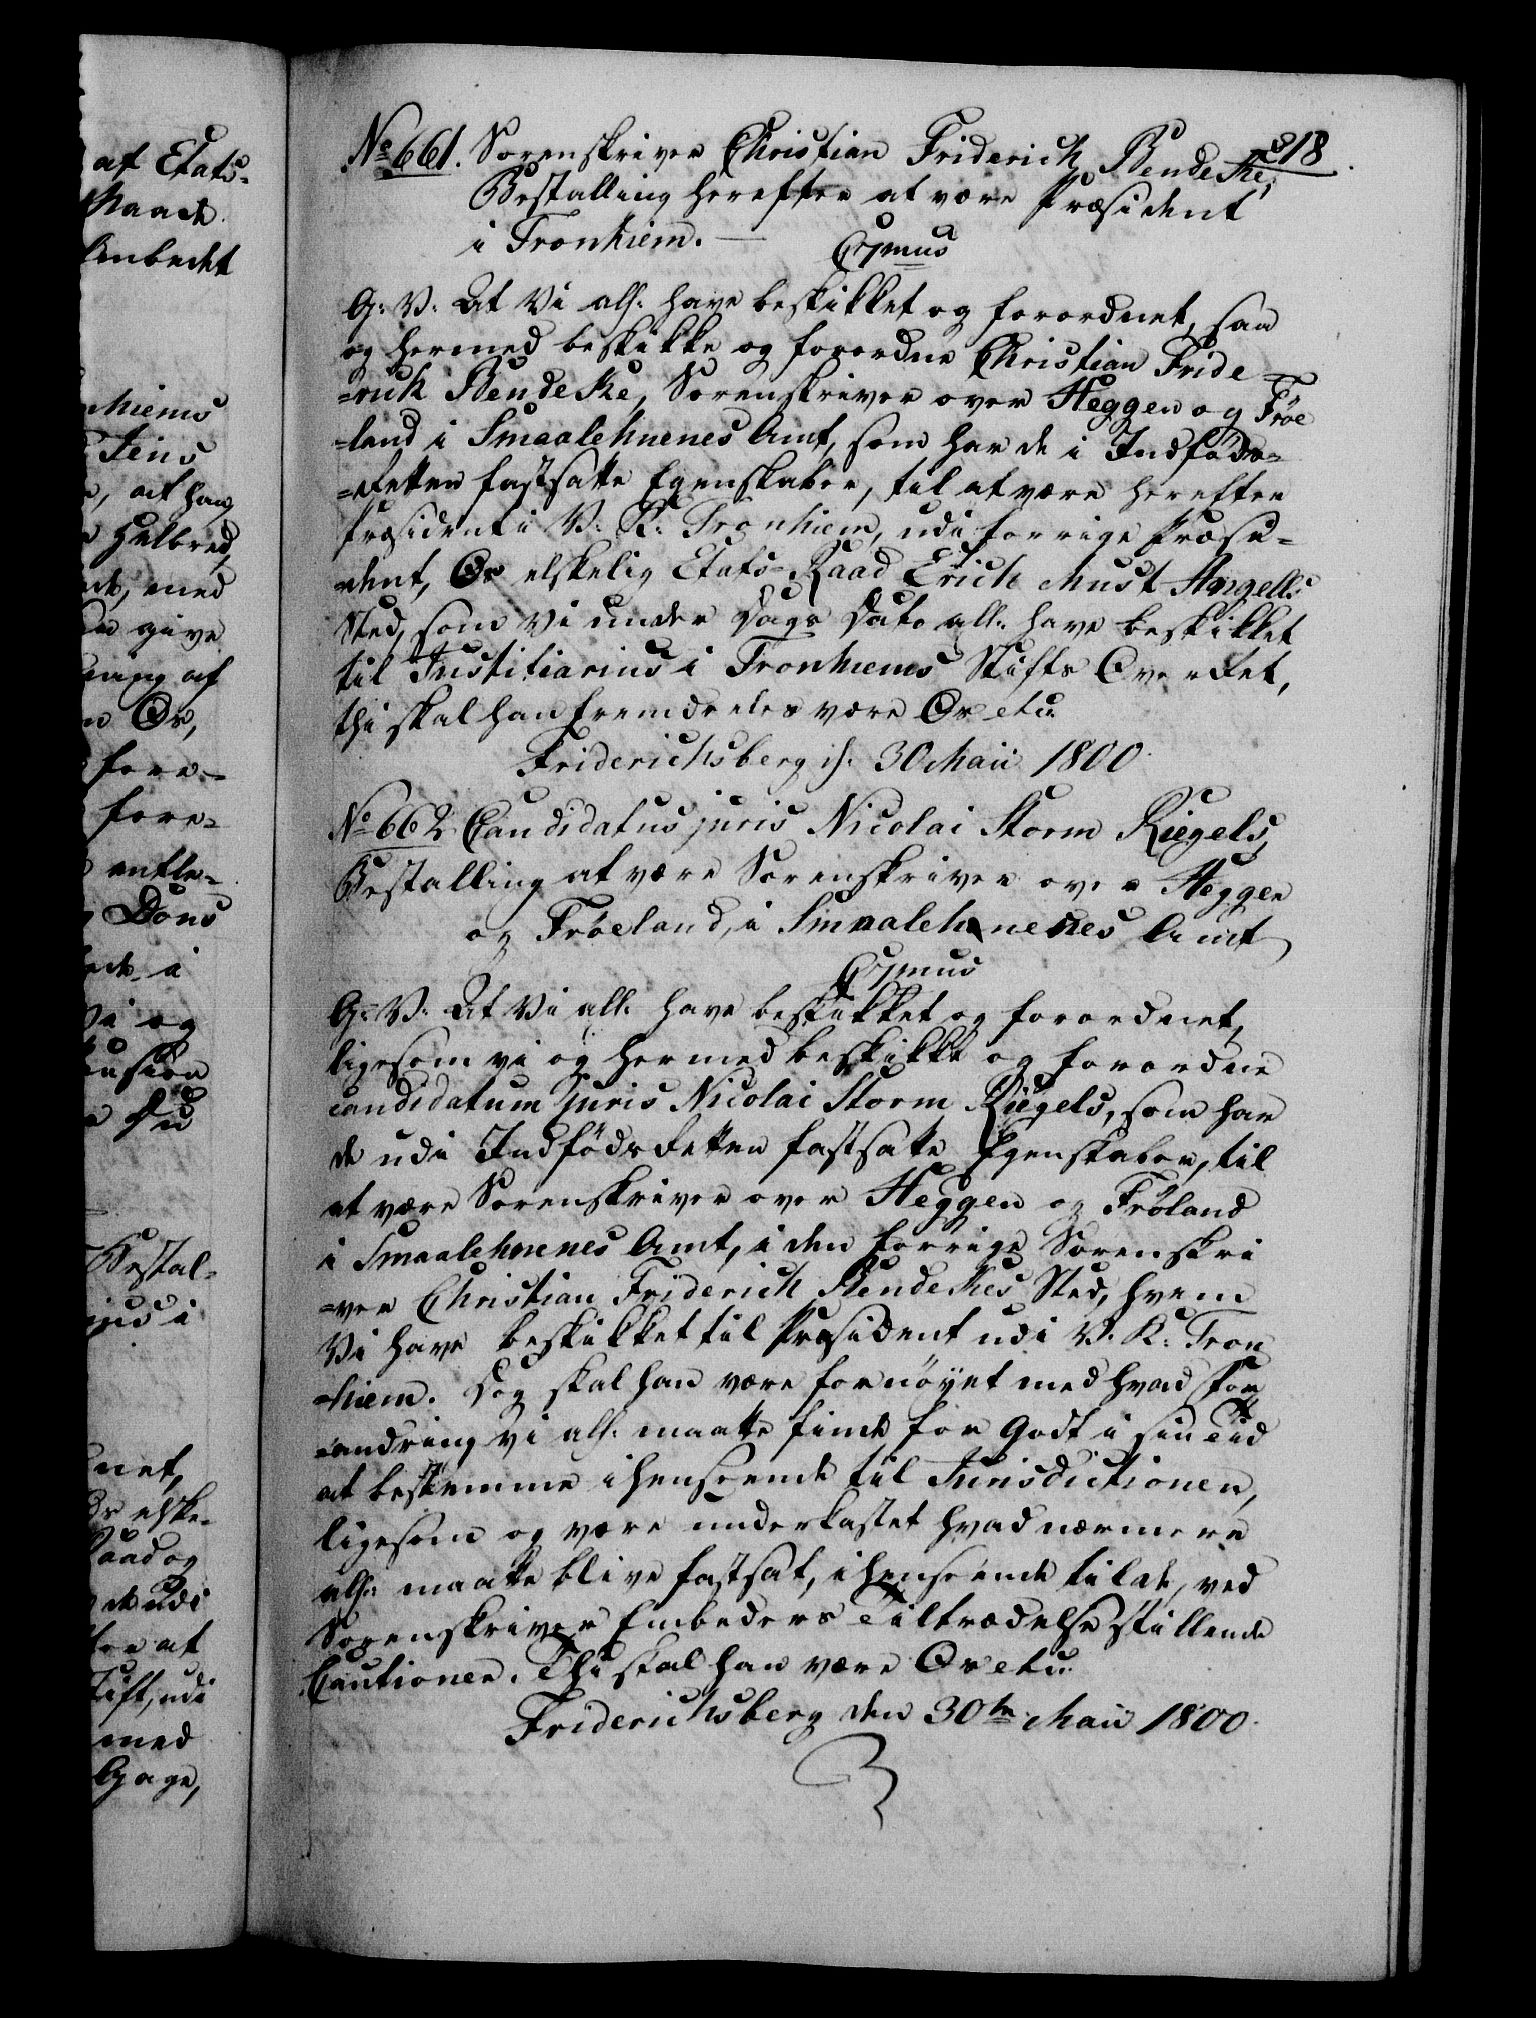 af Etats-
Maade.
Embedet
hiems
Jens
, at han
Helbred,
de, med
give
ning af
Os,
fore-
fore-
entle-
Dons
ede i
Vi og
Pension
Du
Bestal-
i
net,
Os elske-
Raad og
de udi
for at
Stift, udi
med
Gage,
318.
No 661. Sorenskriver Christian Friderich Bendeke,
Bestalling herefter at være Præsident
i Tronhiem. — C7mus
G: V: At Vi all: have beskikket og forordnet, saa
og hermed beskikke og forordne Christian Fride-
=rich Bendeke, Sorenskriver over Heggen og Frøe
=land i Smaalehnenes Amt, som har de i Indføds-
=Retten fastsatte Egenskaber, til at være herefter
Præsident i V: K: Tronhiem, udi forrige Præsi-
=dent, Os elskelig Etats-Raad Erich Must Angells
Sted, som Vi under Dags Dato all: have beskikket
til Justitiarius i Tronhiems Stifts OverRet,
thi skal han fremdeeles være Os etc:
Friderichsberg d. 30 Maii 1800.
No 662. Candidatus juris Nicolai Storm Riegels,
Bestalling at være Sorenskriver over Heggen
og Frøeland, i Smaalehnenes Amt
C7mus
G: V: At Vi all: have beskikket og forordnet,
ligesom vi og hermed beskikke og forordne
candidatum juris Nicolai Storm Riegels, som har
de udi Indføds Retten fastsatte Egenskaber, til
at være Sorenskriver over Heggen og Frøland
i Smaalehnenes Amt, i den forrige Sorenskri
=ver Christian Friderich Bendekes Sted, hvem
Vi have beskikket til Præsident udi V: K: Tron
=hiem. Dog skal han være fornøyet med hvad For
=andring vi all: maatte finde for Godt i sin Tid
at bestemme i henseende til Jurisdictionen,
ligesom og være underkastet hvad nærmere
all: maatte blive fastsat, i henseende til de, ved
Sorenskriver Embeders Tiltrædelse stillende
Cautioner. Thi skal han være Os etc:
Friderichsberg den 30te Maii 1800.